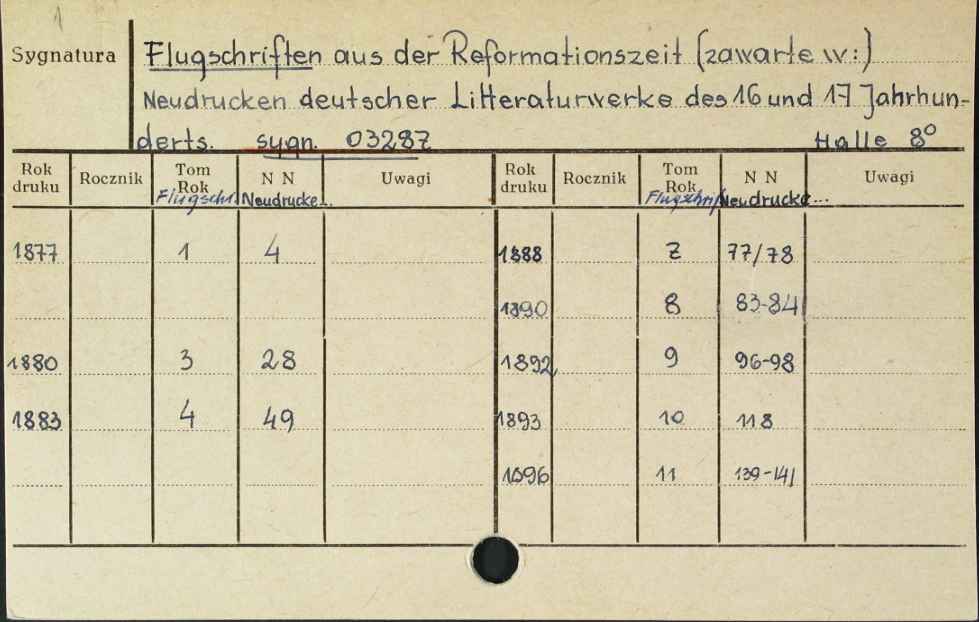 1
Sygnatura
Flugschriften aus der Reformationszeit (zawarte w:)
Neudrucken deutscher Litteraturwerke des 16 und 17 Jahrhun-
derts. sygn. 03287 Halle 8°
Rok druku Rocznik Tom Rok N N Uwagi Rok druku Rocznik Tom Rok N N Uwagi
Flugschr. Neudrucke... Flugschrif Neudrucke...
1877 1 4 1888 7 77/78
1890 8 83-84
1880 3 28 1892 9 96-98
1883 4 49 1893 10 118
1896 11 139-141